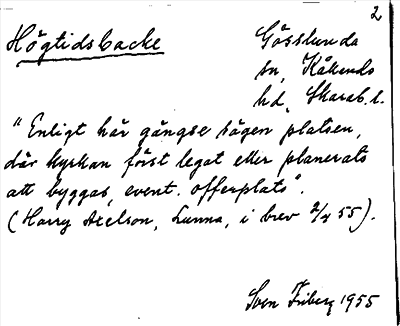 2
Högtidsbacke
Gösslunda
sn, Kållands
hd, Skarab. l.
"Enligt här gängse sägen platsen,
där kyrkan först legat eller planerats
att byggas, event. offerplats".
(Harry Axelson, Lunna, i brev 2/4 55).
Sven Friberg 1955